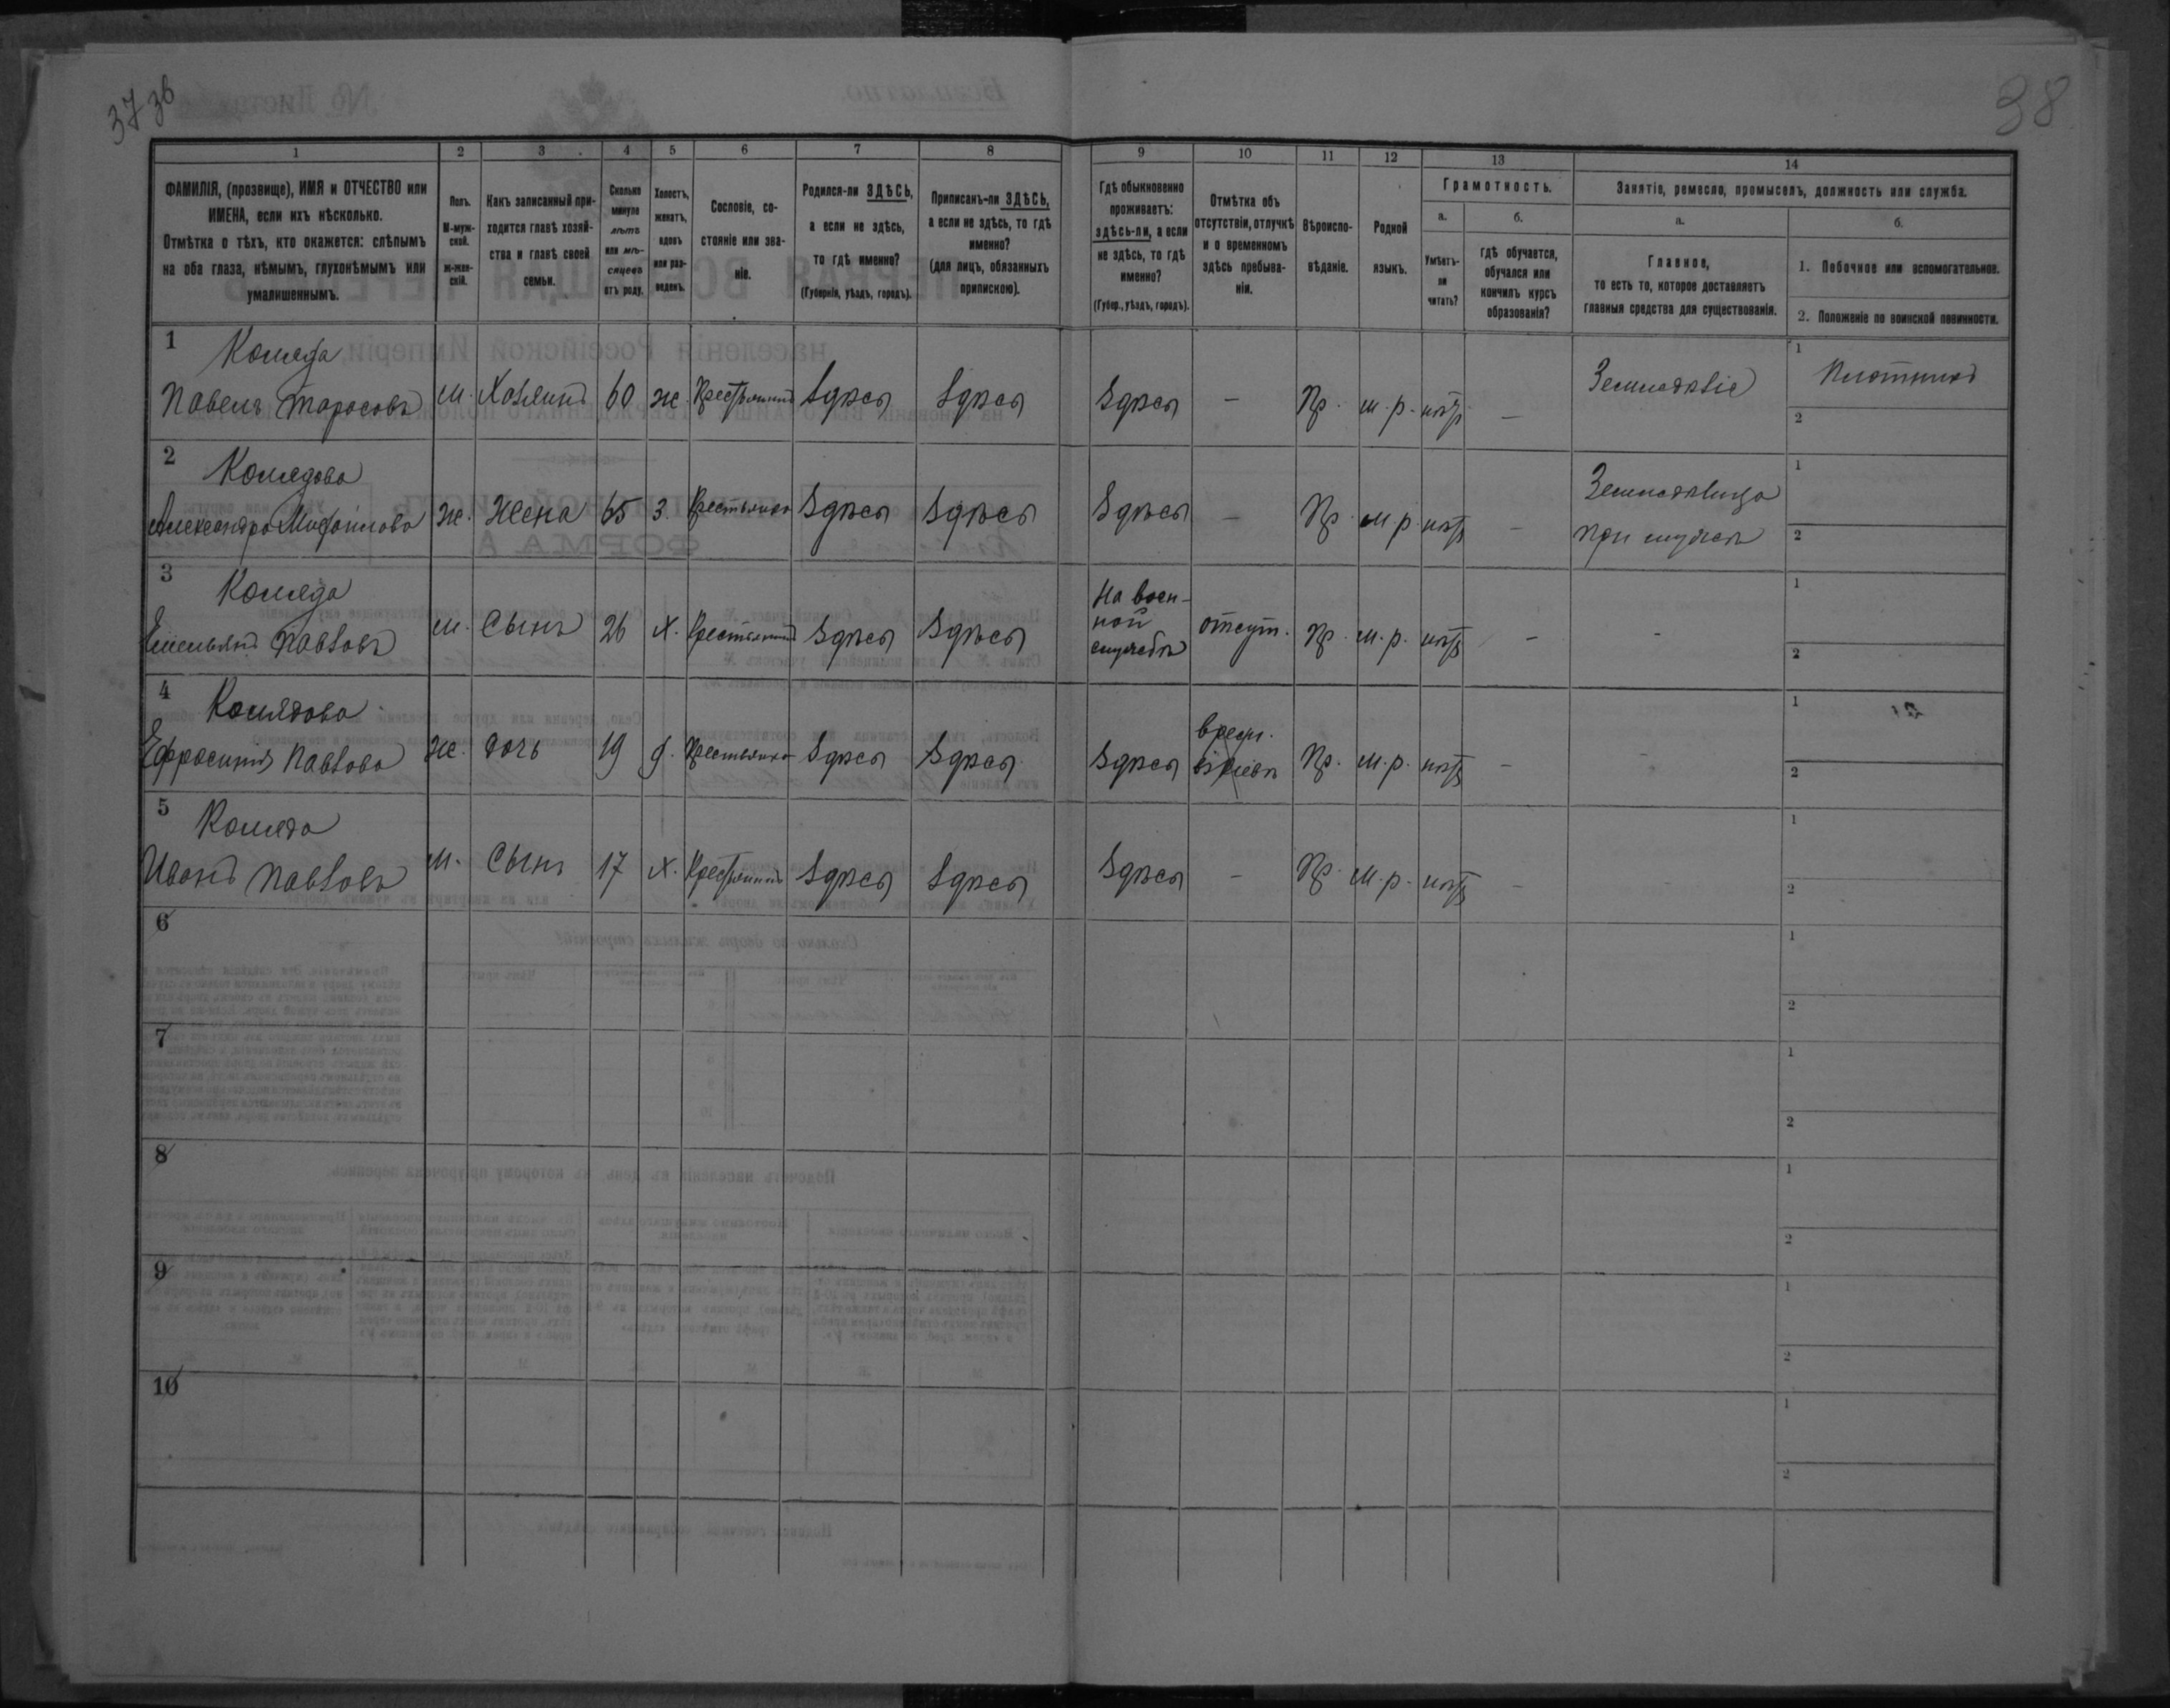 37 зв
38
1 2 3 4 5 6 7 8 9 10 11 12 13 14
ФАМИЛІЯ, (прозвище), ИМЯ и ОТЧЕСТВО или
ИМЕНА, если ихъ нѣсколько.
Отмѣтка о тѣхъ, кто окажется: слѣпымъ
на оба глаза, нѣмымъ, глухонѣмымъ или
умалишеннымъ.
Полъ.
М-муж-
ской.
ж-жен-
скій.
Какъ записанный при-
ходится главѣ хозяй-
ства и главѣ своей
семьи.
Сколько
минуло
лѣтъ
или мѣ-
сяцевъ
отъ роду.
Холостъ,
женатъ,
вдовъ
или раз-
веденъ.
Сословіе, со-
стояніе или зва-
ніе.
Родился-ли ЗДѢСЬ,
а если не здѣсь,
то гдѣ именно?
(Губернія, уѣздъ, городъ).
Приписанъ-ли ЗДѢСЬ,
а если не здѣсь, то гдѣ
именно?
(для лицъ, обязанныхъ
припискою).
Гдѣ обыкновенно
проживаетъ:
здѣсь-ли, а если
не здѣсь, то гдѣ
именно?
(Губер., уѣздъ, городъ).
Отмѣтка объ
отсутствіи, отлучкѣ
и о временномъ
здѣсь пребыва-
ніи.
Вѣроиспо-
вѣданіе.
Родной
языкъ.
Грамотность.
а.
Умѣетъ-
ли
читать?
б.
гдѣ обучается,
обучался или
кончилъ курсъ
образованія?
Занятіе, ремесло, промыселъ, должность или служба.
а.
Главное,
то есть то, которое доставляетъ
главныя средства для существованія.
б.
1. Побочное или вспомогательное.
2. Положеніе по воинской повинности.
1 Коляда
Павелъ Тарасовъ м. Хозяинъ 60 ж. Крестьянинъ Здѣсь Здѣсь Здѣсь – Пр. м. р. нѣтъ – Земледѣліе 1 Плотникъ
2
2 Колядова
Александра Михайлова ж. Жена 65 з. Крестьянка Здѣсь Здѣсь Здѣсь – Пр. м. р. нѣтъ – Земледѣлица
при мужѣ
1
2
3 Коляда
Емельянъ Павловъ м. Сынъ 26 х. Крестьянинъ Здѣсь Здѣсь На воен-
ной
службѣ отсут. Пр. м. р. нѣтъ – –
1
2
4 Колядова
Ефросинія Павлова ж. Дочь 19 д. Крестьянка Здѣсь Здѣсь Здѣсь врем.
Пр. м. р. нѣтъ – –
1
2
5 Коляда
Иванъ Павловъ м. Сынъ 17 х. Крестьянинъ Здѣсь Здѣсь Здѣсь – Пр. м. р. нѣтъ – –
1
2
6
1
2
7
1
2
8
1
2
9
1
2
10
1
2